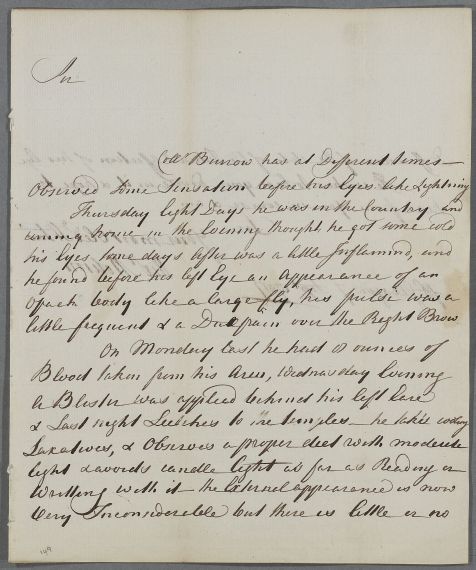 Sir
Coll Burrow has at Different times
Observed some Sensation before his Eyes like Lightning
Thursday Eight Days he was in the Country and
coming home in the Evening thought he got some cold
his Eyes some days after was a little Inflamed, and
he found before his left Eye an Appearance of an
Opack body like a large fly, his pulse was a
little frequent & a Dull pain over the Right Brow
On Monday last he had 8 ounces of
Blood taken from his Arm, Wednesday Evening
a Blister was applied behind his left Eare
& Last night Leeches to the temples — he takes cooling
Laxatives, & Observes a proper diet with moderate
light & avoids candle light as far as Reading or
Writting with it — the External appearance is now
Very Inconsiderable but there is little or no
149